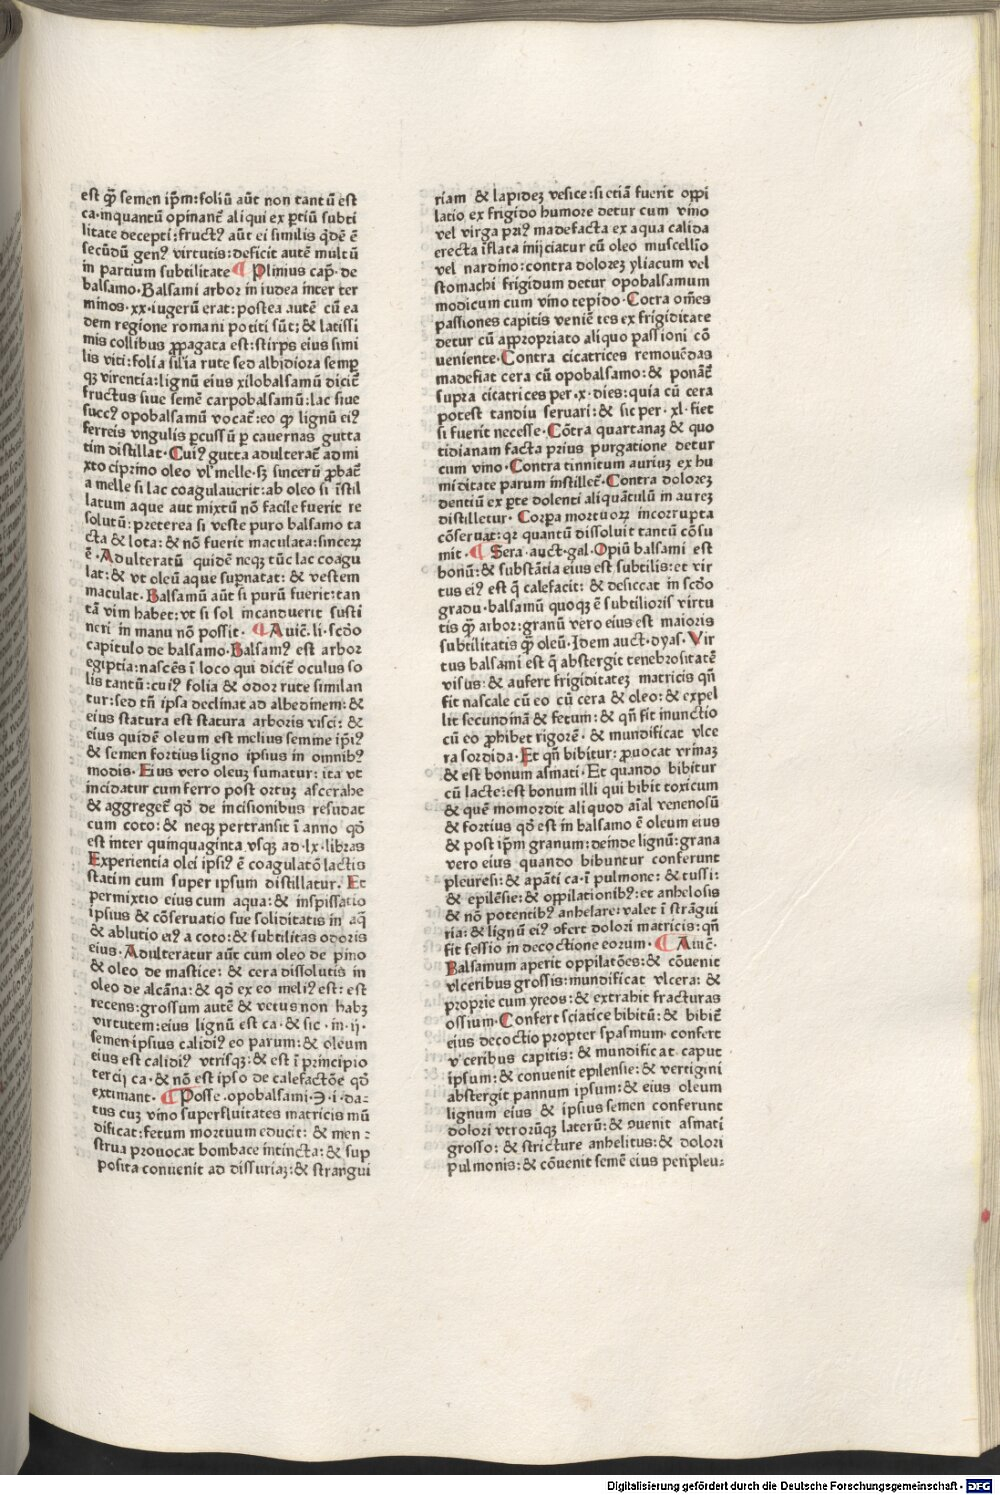 est q̄ꝫ semen ip̄m:foliū aūt non tantū est
ca·inquantū opinanť aliqui ex ꝑtiū subti
litate decepti:fructꝰ aūt ei similis q̄dē ē
secūdū genꝰ virtutis:deficit autē multū
in partium subtilitate ¶ Plinius cap̄·de
balsamo·Balsami arboꝛ in iudea inter ter
minos·xx·iugerū erat:postea autē cū ea
dem regione romani potiti sūt;& latissi
mis collibus ꝓpagata est:stirps eius simi
lis viti:folia sil̄ia rute sed albidiora semꝑ
qꝫ virentia:lignū eius xilobalsamū diciť
fructus siue semē carpobalsamū:lac siue
succꝰ opobalsamū vocať:eo qꝙ lignū eiꝰ
ferreis vngulis ꝑcussū ꝑ cauernas gutta
tim distillat·Cuiꝰ gutta adulterať admi
xto ciprino oleo vl' melle·sꝫ sincerū ꝓbať
a melle si lac coagulauerit:ab oleo si īstil
latum aque aut mixtū nō facile fuerit re
solutū:preterea si veste puro balsamo ta
cta & lota:& nō fuerit maculata:sinceꝝ
ē·Adulteratū quidē neqꝫ tūc lac coagu
lat:& vt oleū aque sup̄natat:& vestem
maculat·Balsamū aūt si purū fuerit:tan
tā vim habet:vt si sol incanduerit susti
neri in manu nō possit· ¶ Auiē·li·scďo
capitulo de balsamo·Balsamꝰ est arbor
egiptia:nascēs ī loco qui diciť oculus so
lis tantū:cuiꝰ folia & odoꝛ rute similan
tur:sed tn̄ ipsa declinat ad albedinem:&
eius statura est statura arboris visci:&
eius quidē oleum est melius semine ip̄iꝰ
& semen fortius ligno ipsius in omnibꝰ
modis·Eius vero oleuꝫ sumatur: ita vt
incidatur cum ferro post ortuꝫ ascerahe
& aggregeť qď de incisionibus resudat
cum coto:& neqꝫ pertransit ī anno qď
est inter quinquaginta vsqꝫ ad·lx·libras
Experientia olei ipsiꝰ ē coagulatō lactis
statim cum super ipsum distillatur· Et
permixtio eius cum aqua:& inspissatio
ipsius & cōseruatio sue soliditatis in aq̄
& ablutio eiꝰ a coto:& subtilitas odoris
eius·Adulteratur aūt cum oleo de pino
& oleo de mastice: & cera dissolutis in
oleo de alcāna:& qď ex eo meliꝰ est: est
recens:grossum autē & vetus non habꝫ
virtutem:eius lignū est ca·& sic·in·ij·
semen·ipsius calidiꝰ eo parum:& oleum
eius est calidiꝰ vtrisqꝫ:& est ī principio
tercij ca·& nō est ipso de calefactōe qď
extimant· ¶ Posse·opobalsami·℈·i·da⸗
tus cuꝫ vino superfluitates matricis mū
dificat:fetum mortuum educit: & men⸗
strua prouocat bombace intincta:& sup
posita conuenit ad dissuriaꝫ:& strangui
riam & lapideꝫ vesice:si etiā fuerit oppi
latio ex frigido humore detur cum vino
vel virga priꝰ madefacta ex aqua calida
erecta īflata inijciatur cū oleo muscellīo
vel nardino:contra doloreꝫ yliacum vel
stomachi frigidum detur opobalsamum
modicum cum vino tepido·Cōtra om̄es
passiones capitis veniētes ex frigiditate
detur cū appropriato aliquo passioni cō
ueniente·Contra cicatrices remouēdas
madefiat cera cū opobalsamo:& ponať
supra cicatrices per·x·dies:quia cū cera
potest tandiu seruari:& sic per·xl·fiet
si fuerit necesse·Cōtra quartanaꝫ & quo
tidianam facta prius purgatione detur
cum vino·Contra tinnitum auriuꝫ ex hu
miditate parum instilleť·Contra doloreꝫ
dentiū ex ꝑte dolenti aliquātulū in aureꝫ
distilletur·Corpa mortuoꝝ incorrupta
cōseruat:qꝛ quantū dissoluit tantū cōsu
mit·¶ Sera·auct·gal·Opiū balsami est
bonū:& substātia eius est subtilis:et vir
tus eiꝰ est q̄ calefacit: & desiccat in scďo
gradu·balsamū quoqꝫ ē subtilioris virtu
tis q̄ꝫ arbor:granū vero eius est maioris
subtilitatis q̄ꝫ oleū·Idem auct·dyas·Vir
tus balsami est q̄ abstergit tenebrositatē
visus:& aufert frigiditateꝫ matricis qn̄
fit nascale cū eo cū cera & oleo:& expel
lit secundinā & fetum:& qn̄ fit inunctio
cū eo ꝓhibet rigorē· & mundificat vlce
ra sordida·Et qn̄ bibitur:ꝓuocat vrinaꝫ
& est bonum asmati·Et quando bibitur
cū lacte:est bonum illi qui bibit toxicum
& quē momordit aliquod aīal venenosū
& fortius qď est in balsamo ē oleum eius
& post ip̄m granum:deinde lignū:grana
vero eius quando bibuntur conferunt
pleuresi:& apāti ca·ī pulmone:& tussi:
& epilēsie:& oppilationibꝰ:et anhelosis
& nō potentibꝰ anhelare:valet ī strāgui
ria:& lignū eiꝰ ꝯfert dolori matricis:qn̄
fit sessio in decoctione eorum·¶ Auiē·
Balsamum aperit oppilatōes:& cōuenit
vlceribus grossis:mundificat vlcera:&
proprie cum yreos:& extrahit fracturas
ossium·Confert sciatice bibitū:& bibiť
eius decoctio propter spasmum· confert
vlceribus capitis:& mundificat caput
ipsum:& conuenit epilensie:& vertigini
abstergit pannum ipsum:& eius oleum
lignum eius & ipsius semen conferunt
dolori vtrorūqꝫ laterū:& ꝯuenit asmati
grosso:& stricture anhelitus:& dolori
pulmonis:& cōuenit semē eius peripleu⸗
Digitalisierung gefördert durch die Deutsche Forschungsgemeinschaft - DFG